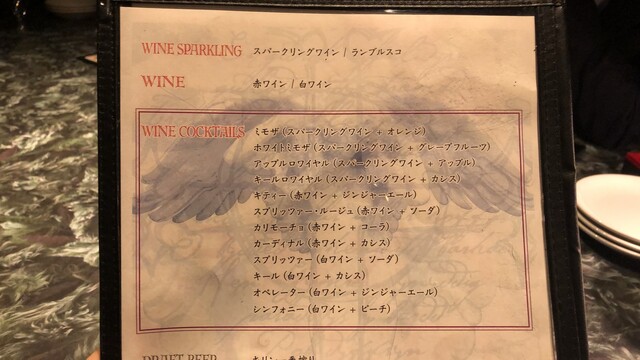 WINE SPARKLING スパークリングワイン / ランブルスコ
WINE 赤ワイン / 白ワイン
WINE COCKTAILS ミモザ (スパークリングワイン + オレンジ)
ホワイトミモザ (スパークリングワイン + グレープフルーツ)
アップルロワイヤル (スパークリングワイン + アップル)
キールロワイヤル (スパークリングワイン + カシス)
キティー (赤ワイン + ジンジャーエール)
スプリッツァー・ルージュ (赤ワイン + ソーダ)
カリモーチョ (赤ワイン + コーラ)
カーディナル (赤ワイン + カシス)
スプリッツァー (白ワイン + ソーダ)
キール (白ワイン + カシス)
オペレーター (白ワイン + ジンジャーエール)
シンフォニー (白ワイン + ピーチ)
DRAFT BEER キリン 一番搾り